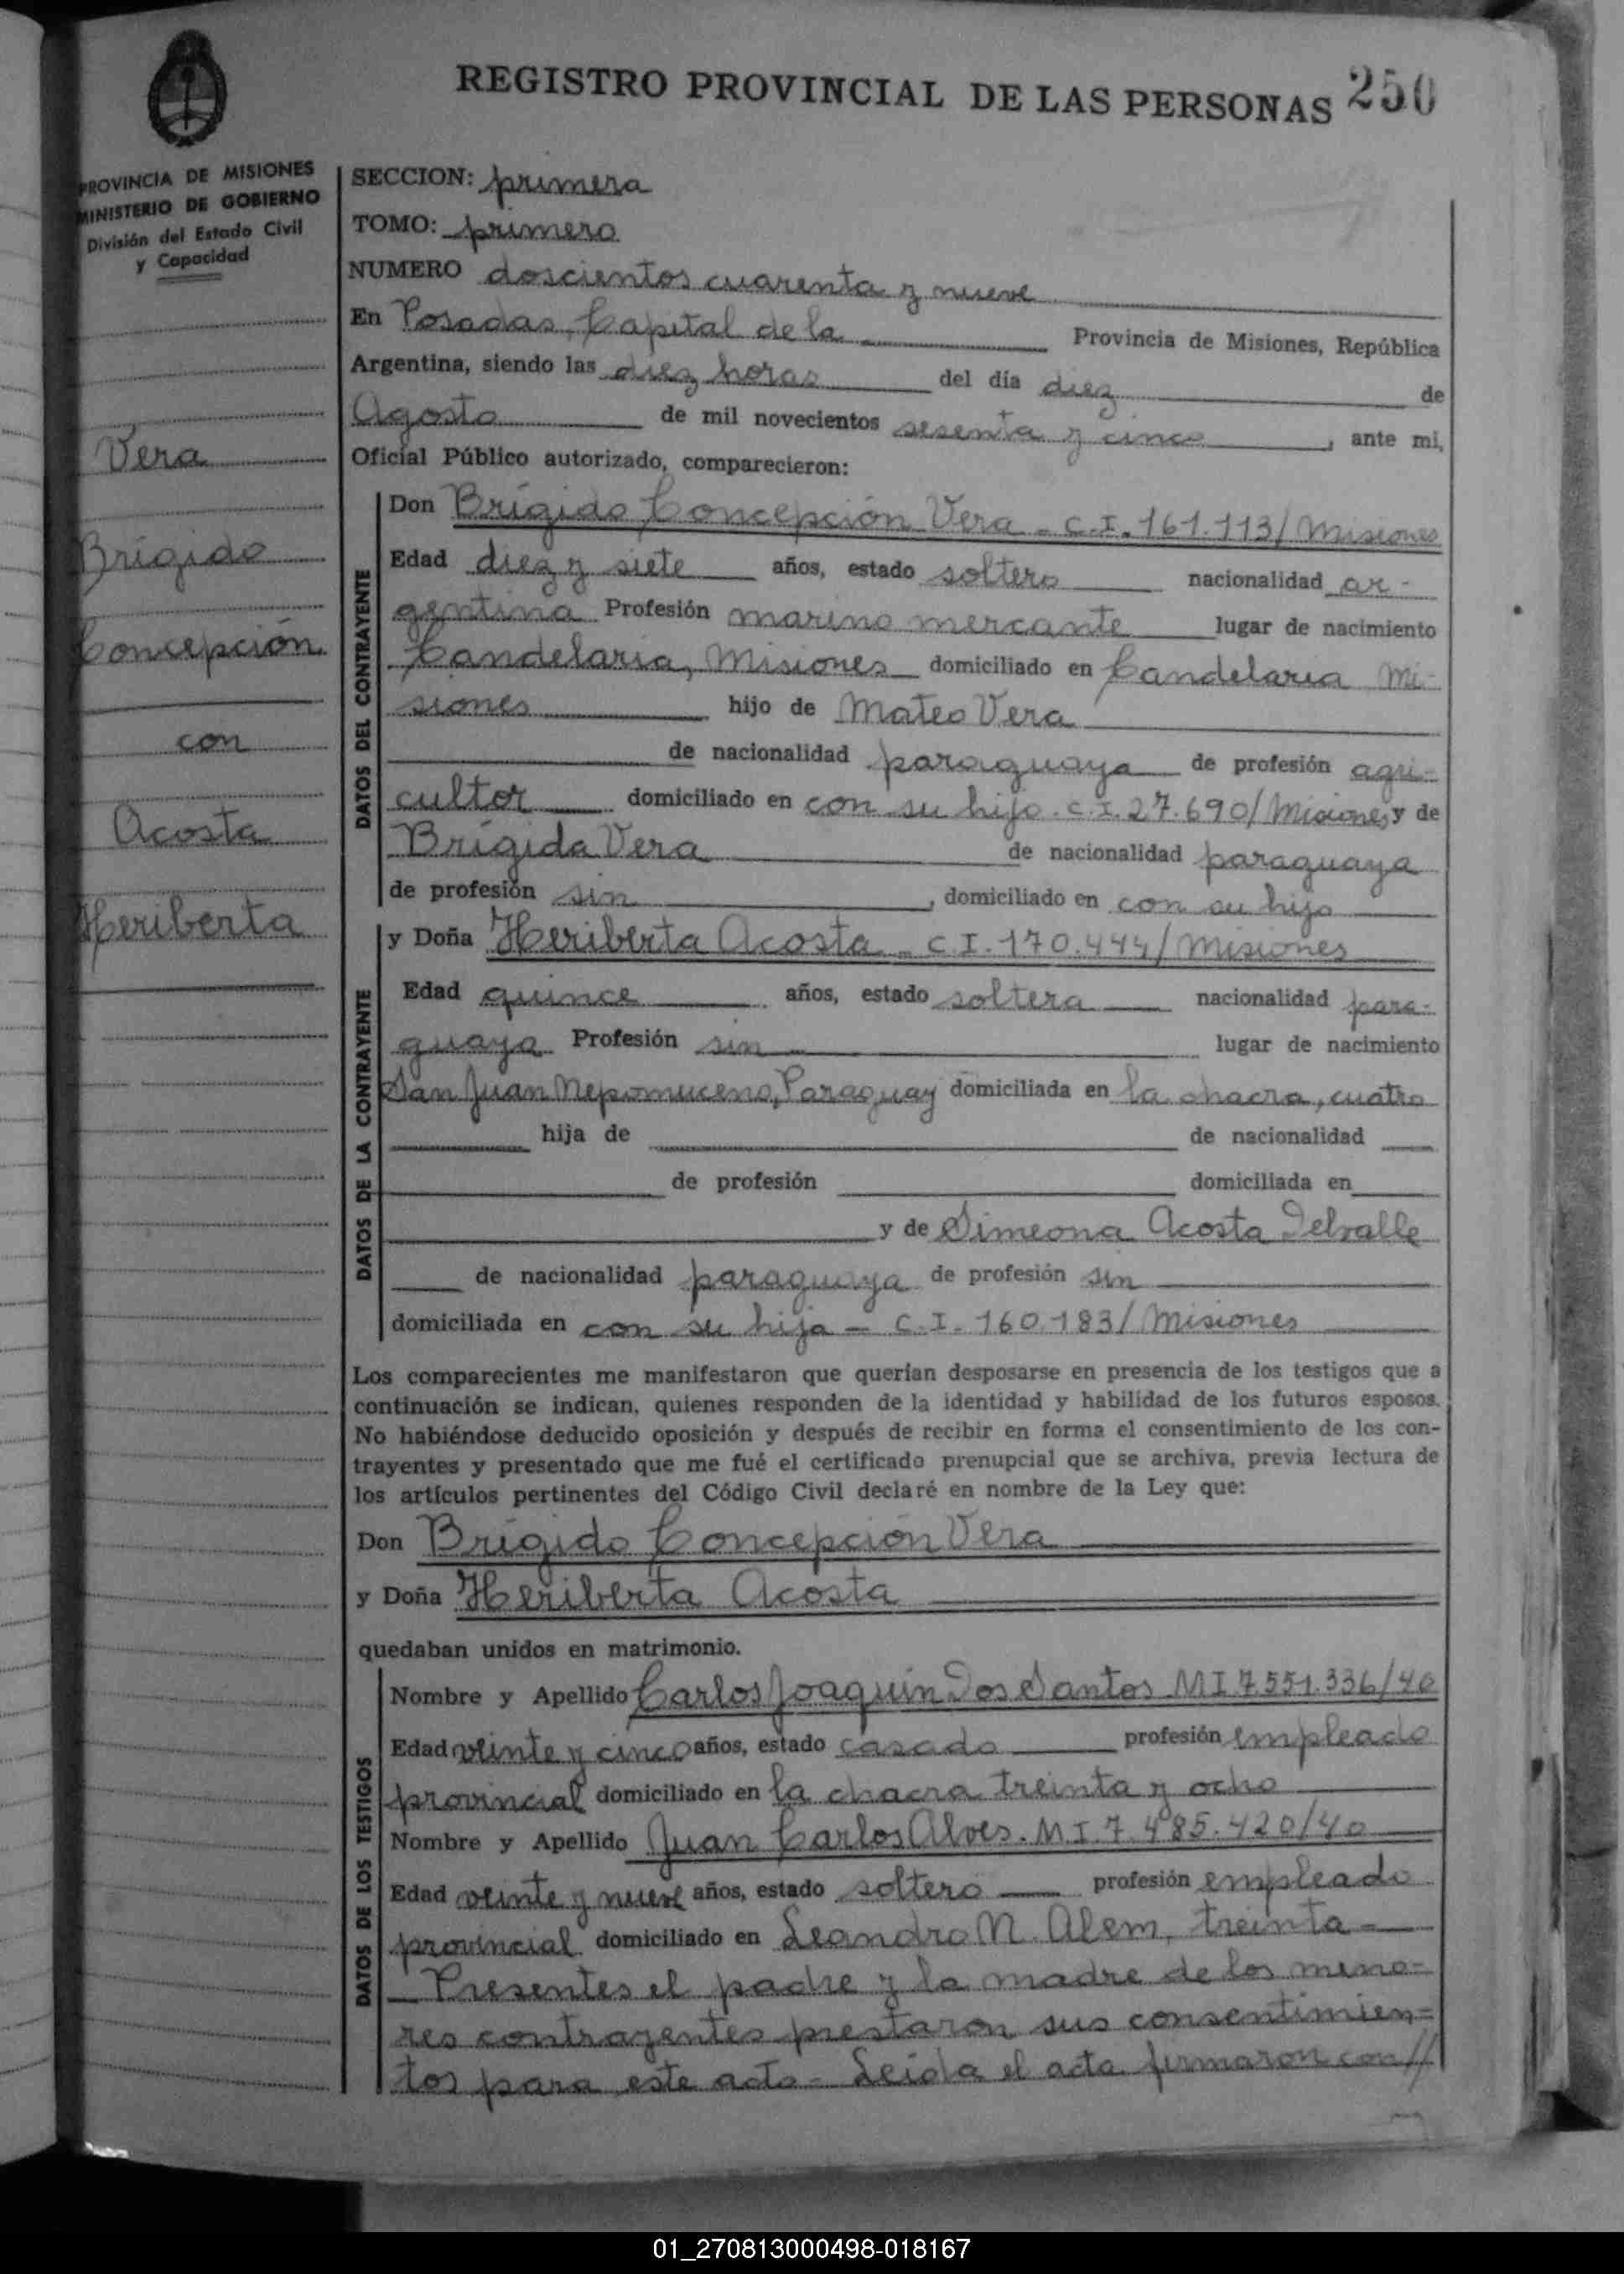 REGISTRO PROVINCIAL DE LAS PERSONAS 250
PROVINCIA DE MISIONES
MINISTERIO DE GOBIERNO
División del Estado Civil
y Capacidad
Vera
Brígido
Concepción
con
Acosta
Heriberta
SECCION: primera
TOMO: primero
NUMERO doscientos cuarenta y nueve
En Posadas, Capital de la Provincia de Misiones, República
Argentina, siendo las diez horas del día diez de
Agosto de mil novecientos sesenta y cinco, ante mi,
Oficial Público autorizado, comparecieron:
DATOS DEL CONTRAYENTE
Don Brígido Concepción Vera - C.I. 161.113/Misiones
Edad diez y siete años, estado soltero nacionalidad ar-
gentina Profesión marino mercante lugar de nacimiento
Candelaria, Misiones domiciliado en Candelaria Mi-
siones hijo de Mateo Vera
de nacionalidad paraguaya de profesión agri-
cultor domiciliado en con su hijo. C.I. 27.690/Misiones y de
Brígida Vera de nacionalidad paraguaya
de profesión sin, domiciliado en con su hijo
DATOS DE LA CONTRAYENTE
y Doña Heriberta Acosta - C.I. 170.444/Misiones
Edad quince años, estado soltera nacionalidad para-
guaya Profesión sin lugar de nacimiento
San Juan Nepomuceno, Paraguay domiciliada en la chacra, cuatro
hija de de nacionalidad
de profesión domiciliada en
y de Simeona Acosta Delvalle
de nacionalidad paraguaya de profesión sin
domiciliada en con su hija - C.I. 160.183/Misiones
Los comparecientes me manifestaron que querían desposarse en presencia de los testigos que a
continuación se indican, quienes responden de la identidad y habilidad de los futuros esposos.
No habiéndose deducido oposición y después de recibir en forma el consentimiento de los con-
trayentes y presentado que me fué el certificado prenupcial que se archiva, previa lectura de
los artículos pertinentes del Código Civil declaré en nombre de la Ley que:
Don Brígido Concepción Vera
y Doña Heriberta Acosta
quedaban unidos en matrimonio.
DATOS DE LOS TESTIGOS
Nombre y Apellido Carlos Joaquín Dos Santos MI 7.551.336/40
Edad veinte y cinco años, estado casado profesión empleado
provincial domiciliado en la chacra treinta y ocho
Nombre y Apellido Juan Carlos Alves. M.I. 7.485.420/40
Edad veinte y nueve años, estado soltero profesión empleado
provincial domiciliado en Leandro N. Alem, treinta -
Presentes el padre y la madre de los meno-
res contrayentes prestaron sus consentimien-
tos para este acto - Leida el acta firmaron con //
01_270813000498-018167